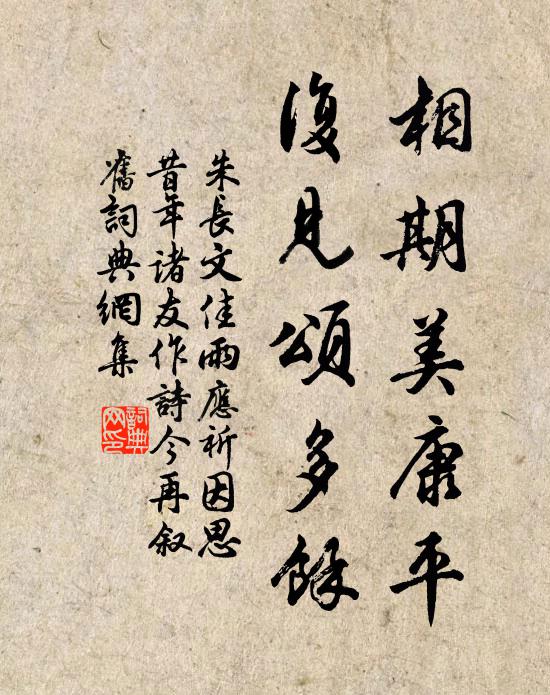 相期美康平
復見頌多餘
朱長文佳雨應祈因思
昔年諸友作詩今再叙
舊詞典網集
詞典網印